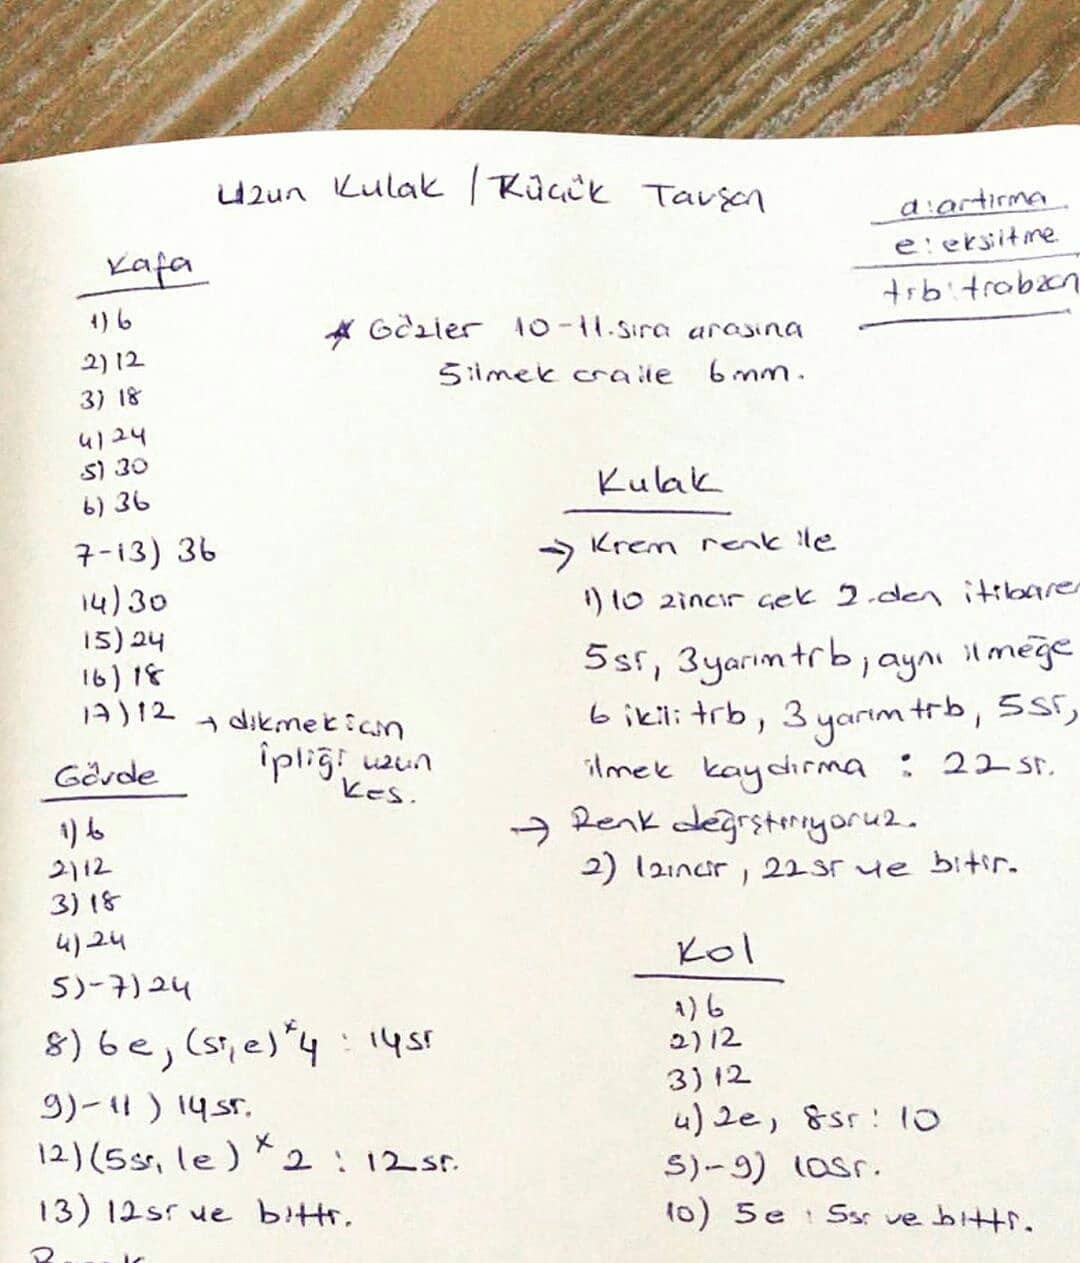 Uzun Kulak / Küçük Tavşan
a: artırma
e: eksiltme
trb: trabzan
Kafa
1) 6
2) 12
3) 18
4) 24
5) 30
6) 36
7-13) 36
14) 30
15) 24
16) 18
17) 12 → dikmek için
ipliği uzun
kes.
* Gözler 10-11. sıra arasına
5 ilmek ara ile 6 mm.
Gövde
1) 6
2) 12
3) 18
4) 24
5)-7) 24
8) 6e, (sr, e)*4 : 14 sr
9)-11) 14 sr.
12) (5 sr, 1e) * 2 : 12 sr.
13) 12 sr ve bittr.
Kulak
→ Krem renk ile
1) 10 zincir çek 2.den itibaren
5 sr, 3 yarım trb, aynı ilmeğe
6 ikili trb, 3 yarım trb, 5 sr,
ilmek kaydırma : 22 sr.
→ Renk değiştiriyoruz.
2) 1 zincir, 22 sr ve bitir.
Kol
1) 6
2) 12
3) 12
4) 2e, 8 sr : 10
5)-9) 10 sr.
10) 5e : 5 sr ve bittr.